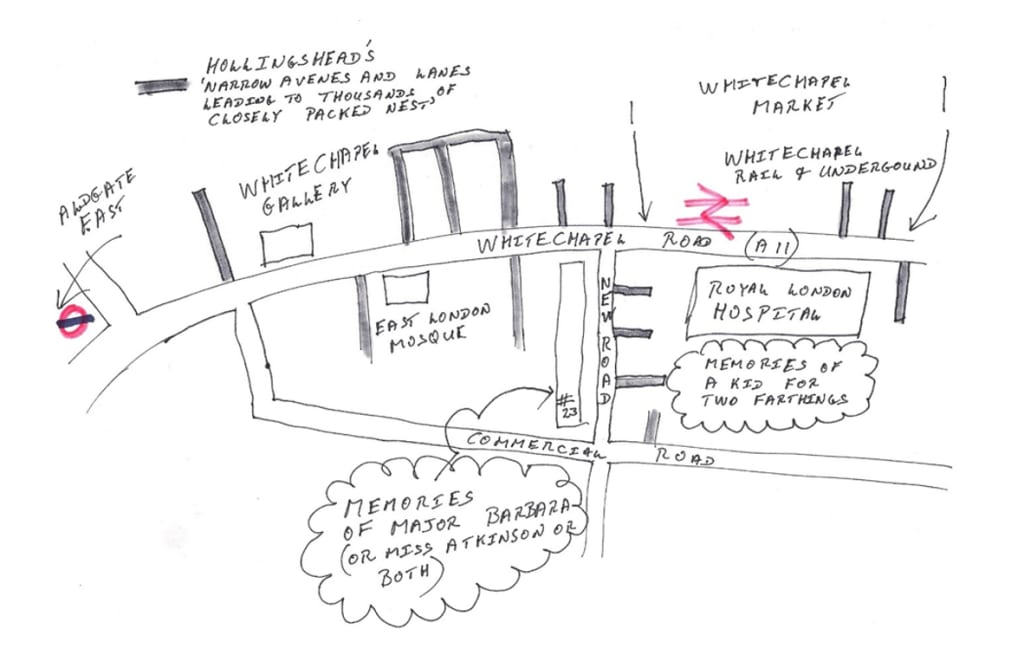 HOLLINGSHEAD'S
'NARROW AVENES AND LANES
LEADING TO THOUSANDS OF
CLOSELY PACKED NEST'
WHITECHAPEL
MARKET
WHITECHAPEL
RAIL & UNDERGOUND
ALDGATE
EAST
WHITECHAPEL
GALLERY
WHITECHAPEL ROAD (A11)
EAST LONDON
MOSQUE
NEW ROAD
ROYAL LONDON
HOSPITAL
MEMORIES OF
A KID FOR
TWO FARTHINGS
#
23
COMMERCIAL ROAD
MEMORIES
OF MAJOR BARBARA
(OR MISS ATKINSON OR
BOTH)